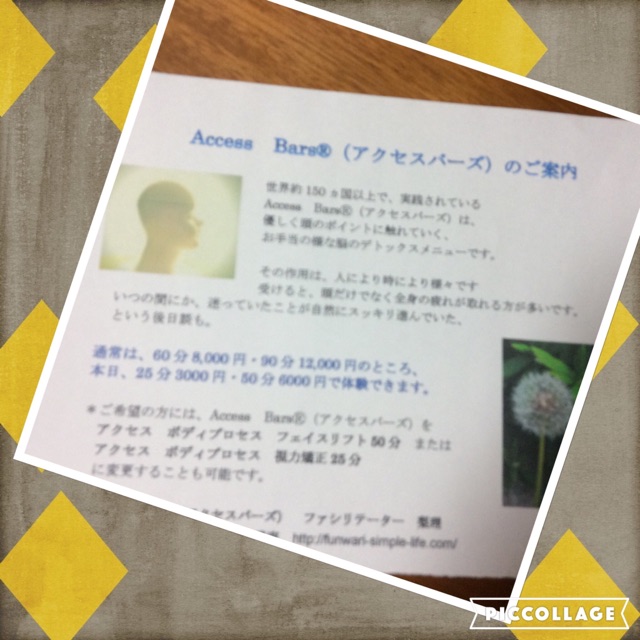 Access Bars®（アクセスバーズ）のご案内
世界約150ヵ国以上で、実践されている
Access Bars®（アクセスバーズ）は、
優しく頭のポイントに触れていく、
お手当の様な脳のデトックスメニューです。
その作用は、人により時により様々です
受けると、頭だけでなく全身の疲れが取れる方が多いです。
いつの間にか、迷っていたことが自然にスッキリ進んでいた、
という後日談も。
通常は、60分8,000円・90分12,000円のところ、
本日、25分3000円・50分6000円で体験できます。
＊ご希望の方には、Access Bars®（アクセスバーズ）を
アクセス ボディプロセス フェイスリフト50分 または
アクセス ボディプロセス 視力矯正25分
に変更することも可能です。
クセスバーズ） ファシリテーター 整理
http://funwari-simple-life.com/
PICCOLLAGE